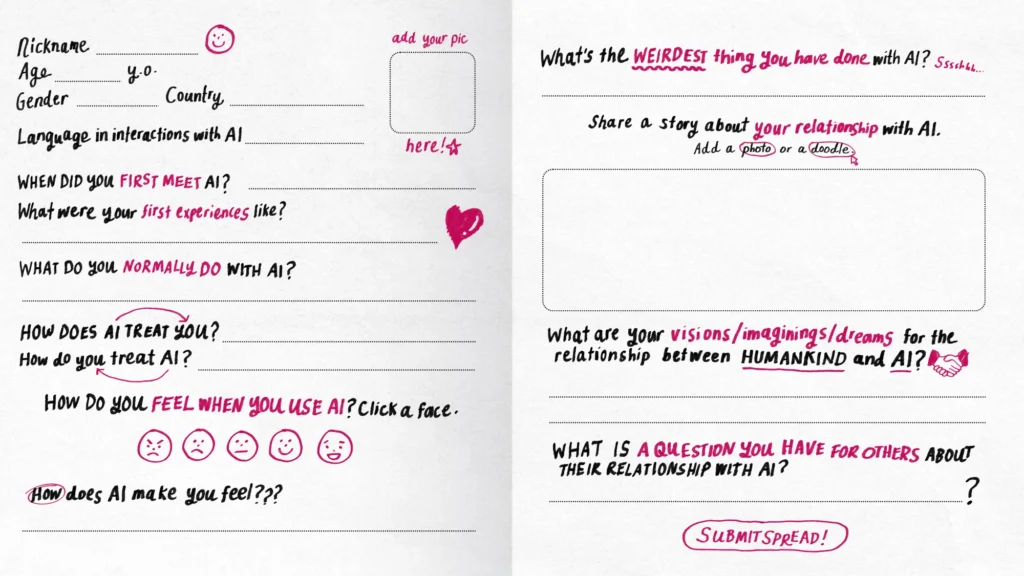 Nickname
Age y.o.
Gender Country
Language in interactions with AI
add your pic
here!
WHEN DID YOU FIRST MEET AI?
What were your first experiences like?
WHAT DO YOU NORMALLY DO WITH AI?
HOW DOES AI TREAT YOU?
How do you treat AI?
HOW DO YOU FEEL WHEN YOU USE AI? Click a face.
How does AI make you feel???
What's the WEIRDEST thing you have done with AI? Sssshhh...
Share a story about your relationship with AI.
Add a photo or a doodle.
What are your visions/imaginings/dreams for the
relationship between HUMANKIND and AI?
WHAT IS A QUESTION YOU HAVE FOR OTHERS ABOUT
THEIR RELATIONSHIP WITH AI?
?
SUBMIT SPREAD!